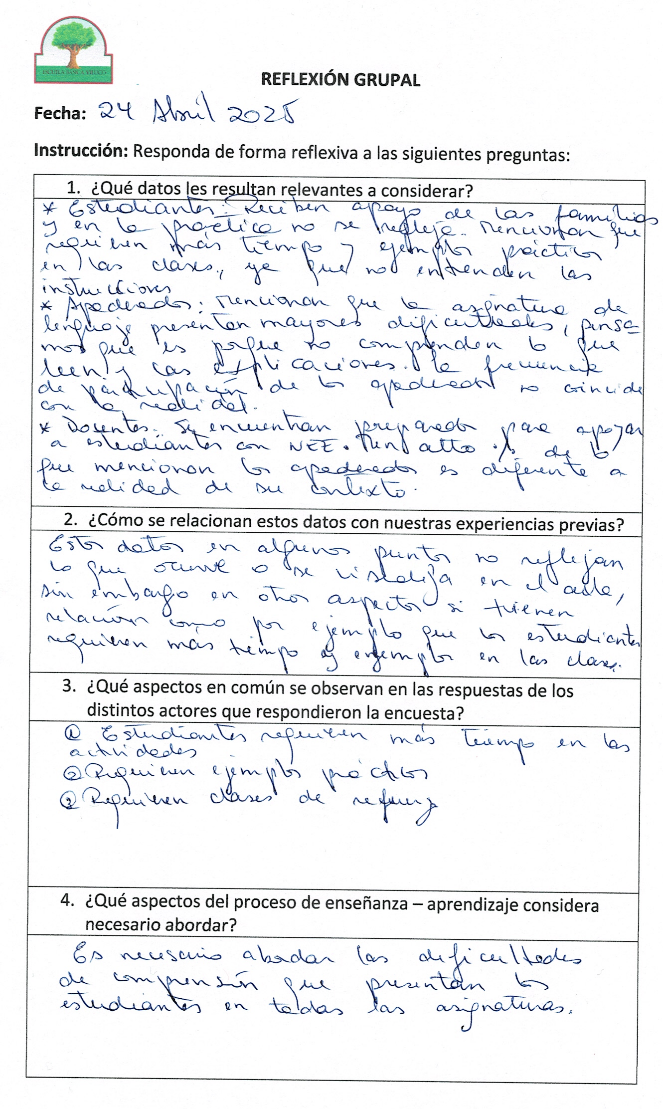 REFLEXIÓN GRUPAL
Fecha: 24 Abril 2025
Instrucción: Responda de forma reflexiva a las siguientes preguntas:
1. ¿Qué datos les resultan relevantes a considerar?
* Estudiantes: Reciben apoyo de las familias
y en la práctica no se refleja. Mencionan que
requieren más tiempo y ejemplos prácticos
en las clases, ya que no entienden las
instrucciones
* Apoderados: Mencionan que la asignatura de
lenguaje presentan mayores dificultades, pensa
mos que es porque no comprenden lo que
leen y las explicaciones. La frecuencia
de participación de los apoderados no coincide
con la realidad.
* Docentes: Se encuentran preparados para apoyar
a estudiantes con NEE. Un alto % de lo
que mencionan los apoderados es diferente a
la realidad de su contexto.
2. ¿Cómo se relacionan estos datos con nuestras experiencias previas?
Estos datos en algunos puntos no reflejan
lo que ocurre o se visualiza en el aula,
sin embargo en otros aspectos si tienen
relación como por ejemplo que los estudiantes
requieren más tiempo y ejemplos en las clases.
3. ¿Qué aspectos en común se observan en las respuestas de los
distintos actores que respondieron la encuesta?
① Estudiantes requieren más tiempo en las
actividades
② Requieren ejemplos prácticos
② Requieren clases de refuerzo
4. ¿Qué aspectos del proceso de enseñanza – aprendizaje considera
necesario abordar?
Es necesario abordar las dificultades
de comprensión que presentan los
estudiantes en todas las asignaturas.